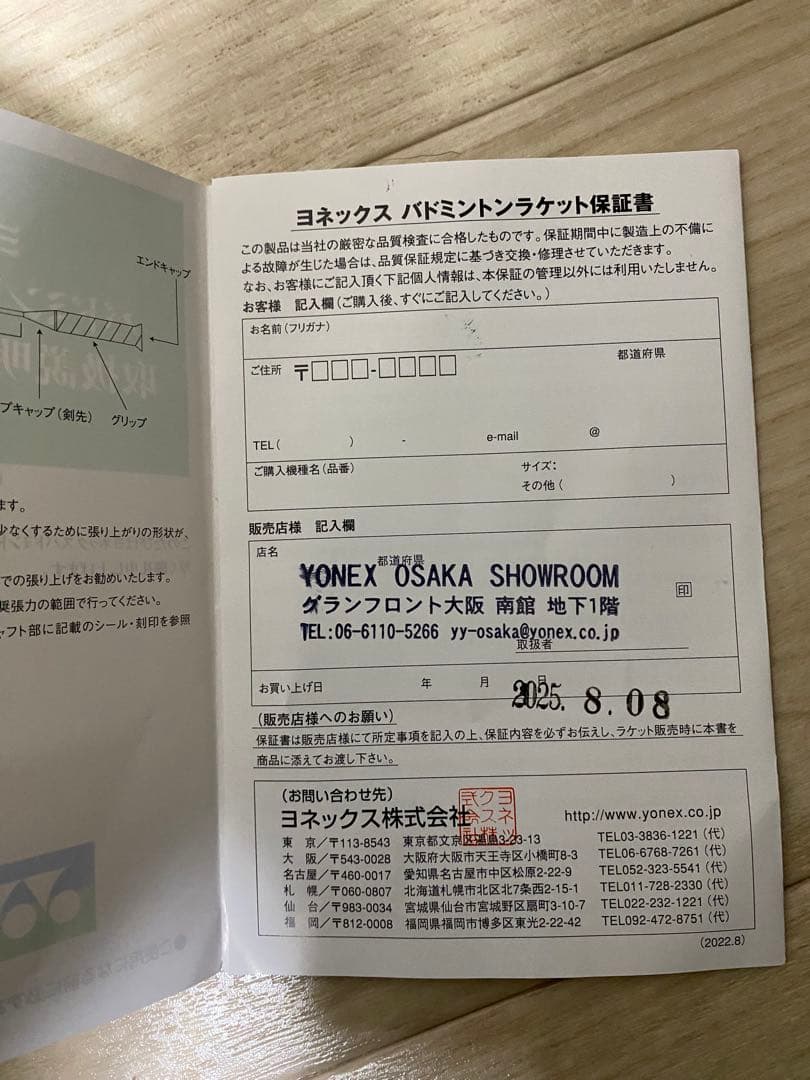 エンドキャップ
プキャップ(剣先)
グリップ
ます。
少なくするために張り上がりの形状が、
での張り上げをお勧めいたします。
奨張力の範囲で行ってください。
ャフト部に記載のシール・刻印を参照
ヨネックス バドミントンラケット保証書
この製品は当社の厳密な品質検査に合格したものです。保証期間中に製造上の不備に
よる故障が生じた場合は、品質保証規定に基づき交換・修理させていただきます。
なお、お客様にご記入頂く下記個人情報は、本保証の管理以外には利用いたしません。
お客様 記入欄(ご購入後、すぐにご記入してください。)
お名前(フリガナ)
ご住所 〒□□□-□□□□ 都道府県
TEL( ) - e-mail @
ご購入機種名(品番) サイズ:
その他( )
販売店様 記入欄
店名 都道府県
YONEX OSAKA SHOWROOM
グランフロント大阪 南館 地下1階
印
TEL:06-6110-5266 yy-osaka@yonex.co.jp
取扱者
お買い上げ日 年 月 日
2025. 8. 08
(販売店様へのお願い)
保証書は販売店様にて所定事項を記入の上、保証内容を必ずお伝えし、ラケット販売時に本書を
商品に添えてお渡し下さい。
(お問い合わせ先)
ヨネックス株式会社 http://www.yonex.co.jp
東 京/〒113-8543 東京都文京区湯島3-23-13 TEL03-3836-1221(代)
大 阪/〒543-0028 大阪府大阪市天王寺区小橋町8-3 TEL06-6768-7261(代)
名古屋/〒460-0017 愛知県名古屋市中区松原2-22-9 TEL052-323-5541(代)
札 幌/〒060-0807 北海道札幌市北区北7条西2-15-1 TEL011-728-2330(代)
仙 台/〒983-0034 宮城県仙台市宮城野区扇町3-10-7 TEL022-232-1221(代)
福 岡/〒812-0008 福岡県福岡市博多区東光2-22-42 TEL092-472-8751(代)
(2022.8)